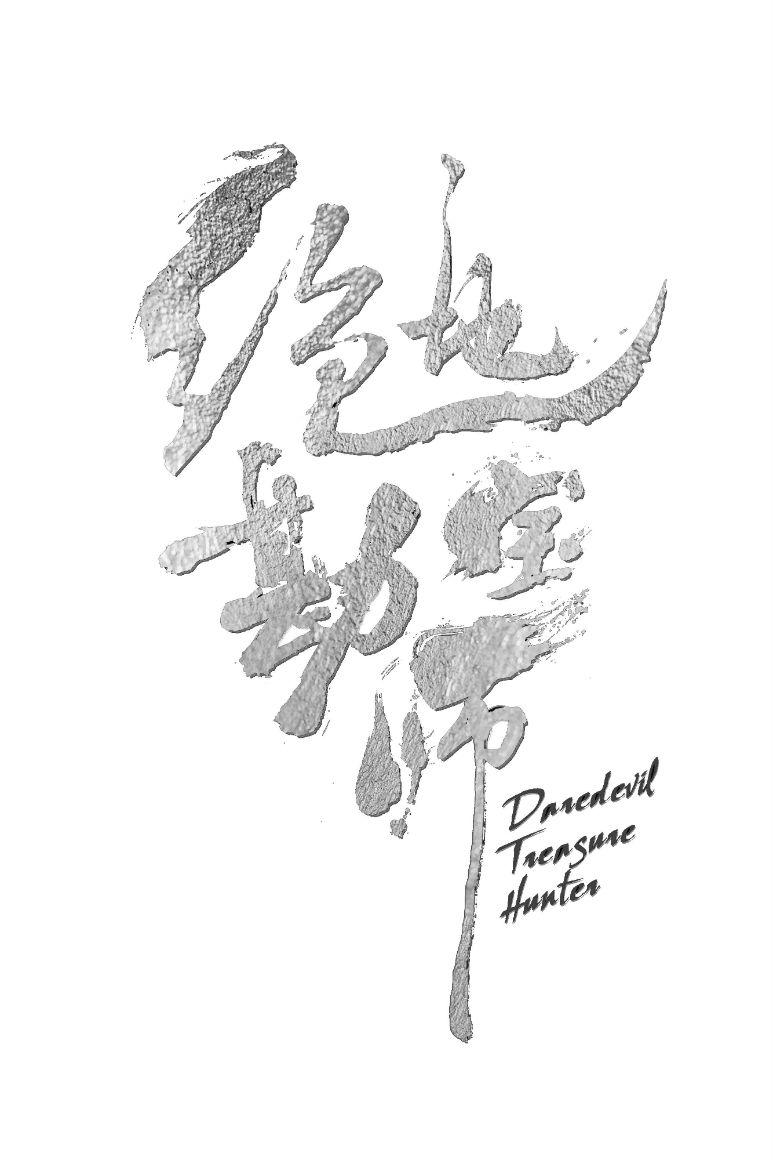 绝地
勘宝
师
Daredevil
Treasure
Hunter